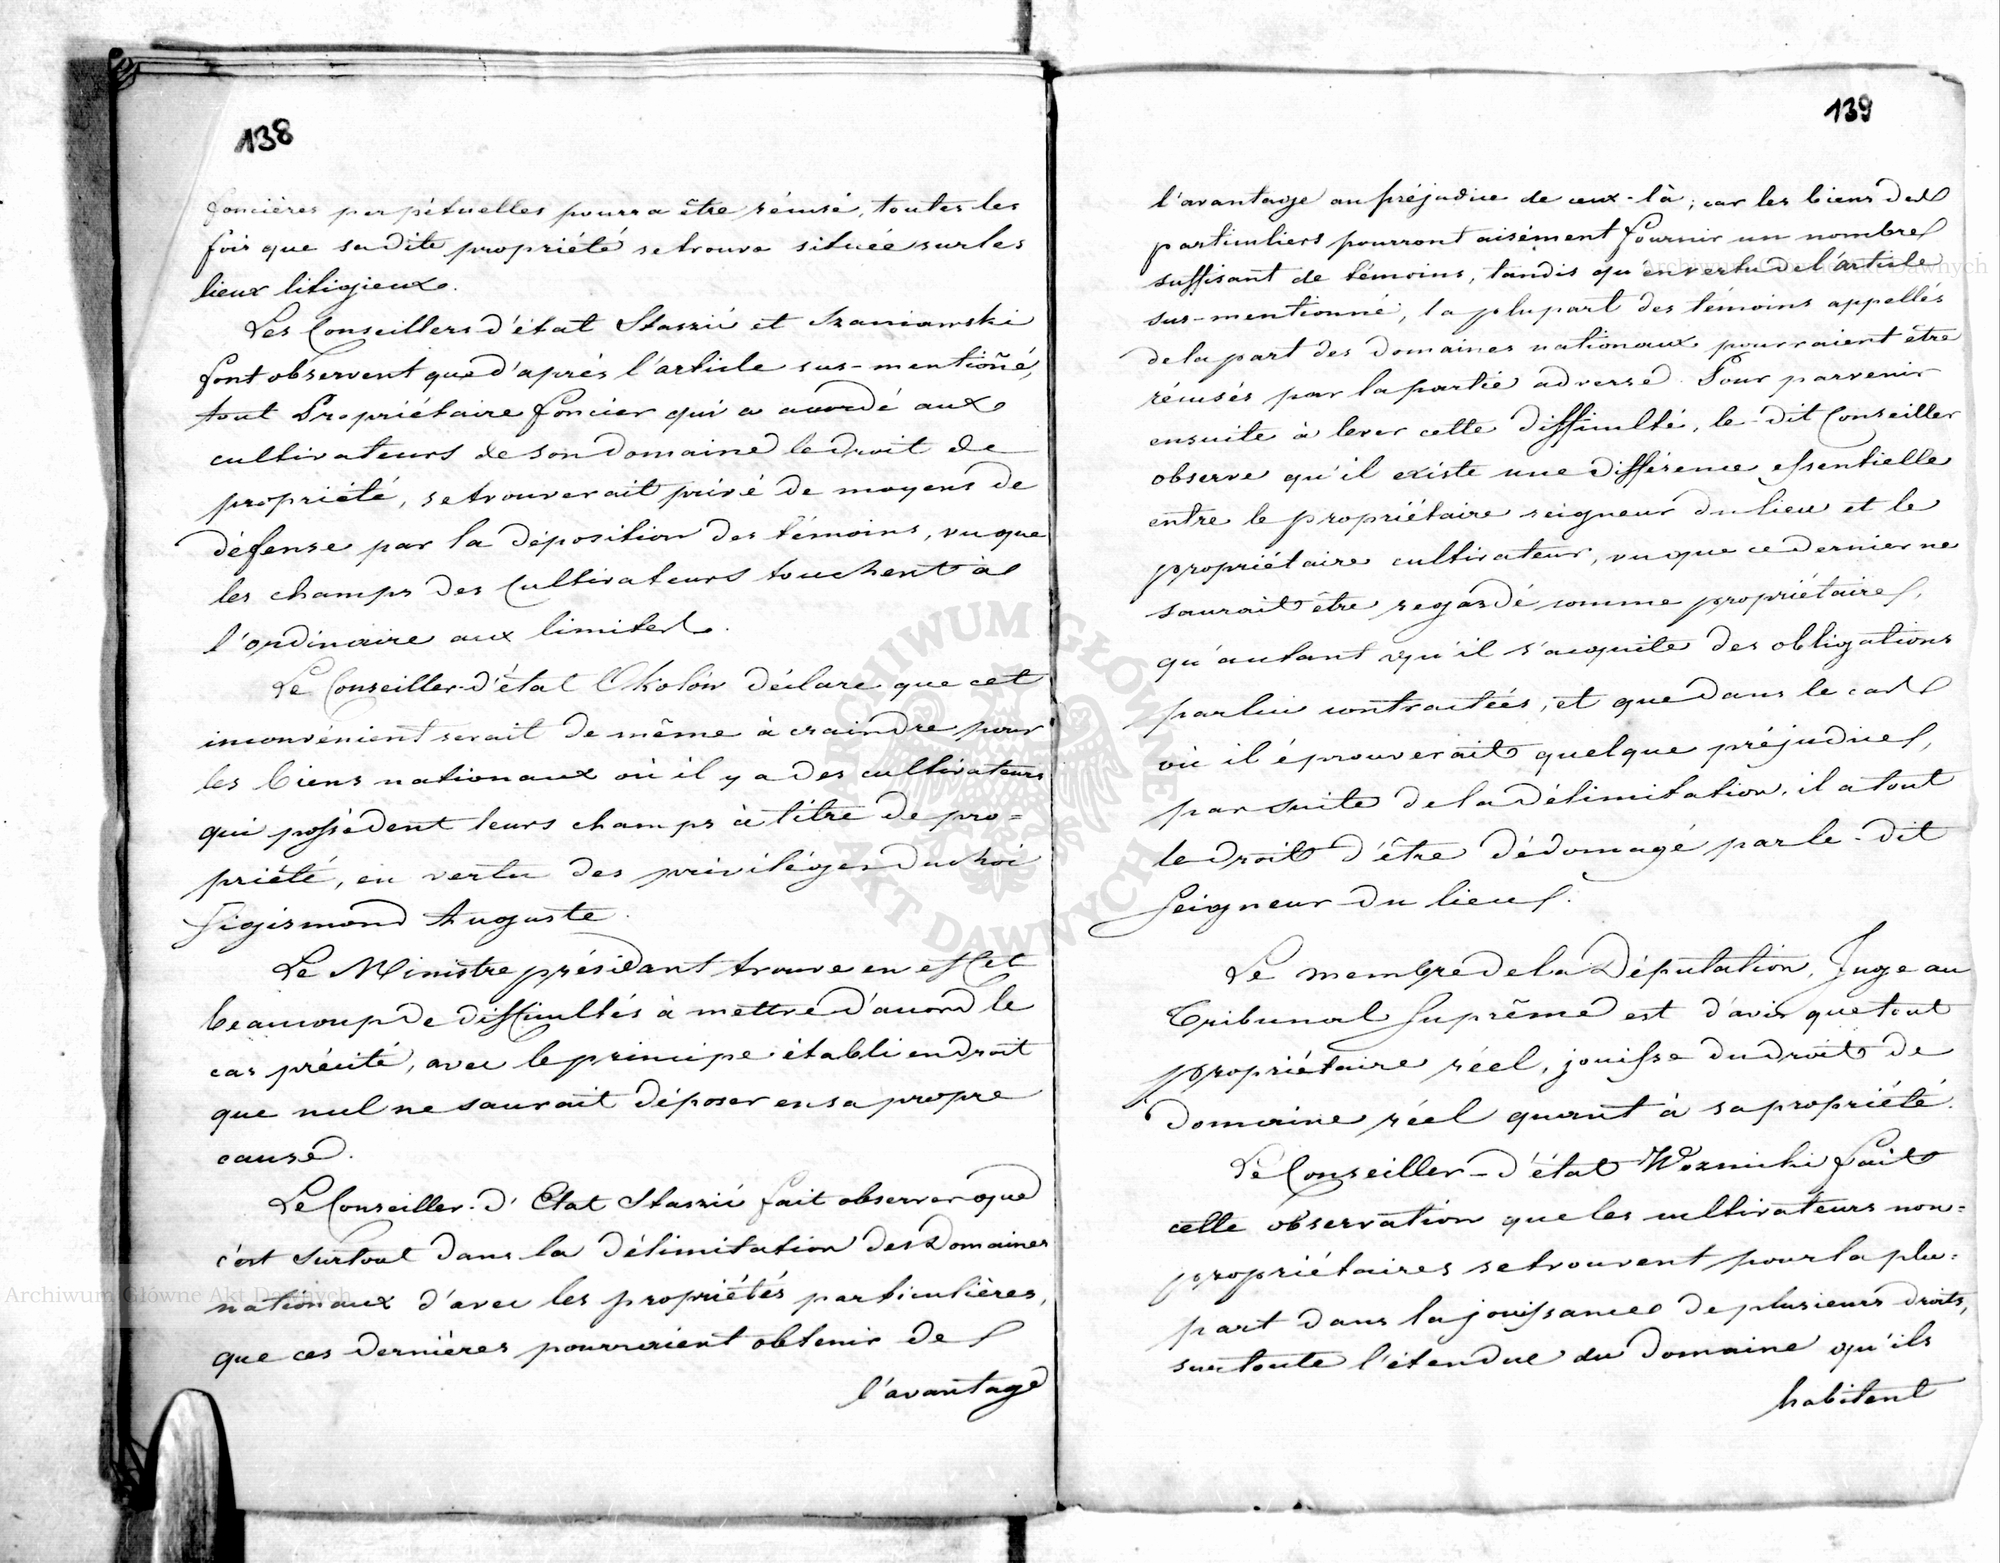 138
foncières perpétuelles pourra être récusé, toutes les
fois que sa dite propriété se trouve située sur les
lieux litigieux.
Les Conseillers d'état Staszic et Szaniawski
font observent que d'après l'article sus-mentioñé,
tout Propriétaire foncier qui a accordé aux
cultivateurs de son domaine le droit de
propriété, se trouverait privé de moyens de
défense par la déposition des témoins, vu que
les champs des Cultivateurs touchent à
l'ordinaire aux limites.
Le Conseiller-d'état Okolów déclare que cet
inconvénient serait de même à craindre pour
les biens nationaux où il y a des cultivateurs
qui possèdent leurs champs à titre de pro=
priété, en vertu des privilèges du Roi
Sigismond Auguste.
Le Ministre présidant trouve en effet
beaucoup de difficultés à mettre d'accord le
cas précité, avec le principe établi en droit
que nul ne saurait déposer en sa propre
cause.
Le Conseiller-d'Etat Staszic fait observer que
c'est surtout dans la délimitation des Domaines
nationaux d'avec les propriétés particulières,
que ces dernières pourraient obtenir de
l'avantage
139
l'avantage au préjudice de ceux-là; car les biens des
particuliers pourront aisément fournir un nombre
suffisant de témoins, tandis qu'en vertu de l'article
sus-mentionné, la plupart des témoins appellés
de la part des domaines nationaux pourraient être
récusés par la partie adverse. Pour parvenir
ensuite à lever cette difficulté, le-dit Conseiller
observe qu'il existe une différence essentielle
entre le propriétaire seigneur du lieu et le
propriétaire cultivateur, vu que ce dernier ne
saurait être regardé comme propriétaire,
qu'autant qu'il s'acquite des obligations
par lui contractées, et que dans le cas
où il éprouverait quelque préjudice,
par suite de la délimitation, il a tout
le droit d'être dédomagé par le-dit
Seigneur du lieu.
Le membre de la Députation, Juge au
Tribunal Suprême est d'avis que tout
propriétaire réel, jouisse du droit de
domaine réel quant à sa propriété.
Le Conseiller-d'état Woznicki fait
cette observation que les cultivateurs non=
propriétaires se trouvent pour la plu=
part dans la jouissance de plusieurs droits,
sur toute l'étendue du domaine qu'ils
habitent
Archiwum Główne Akt Dawnych
Archiwum Główne Akt Dawnych
ARCHIWUM GŁÓWNE AKT DAWNYCH